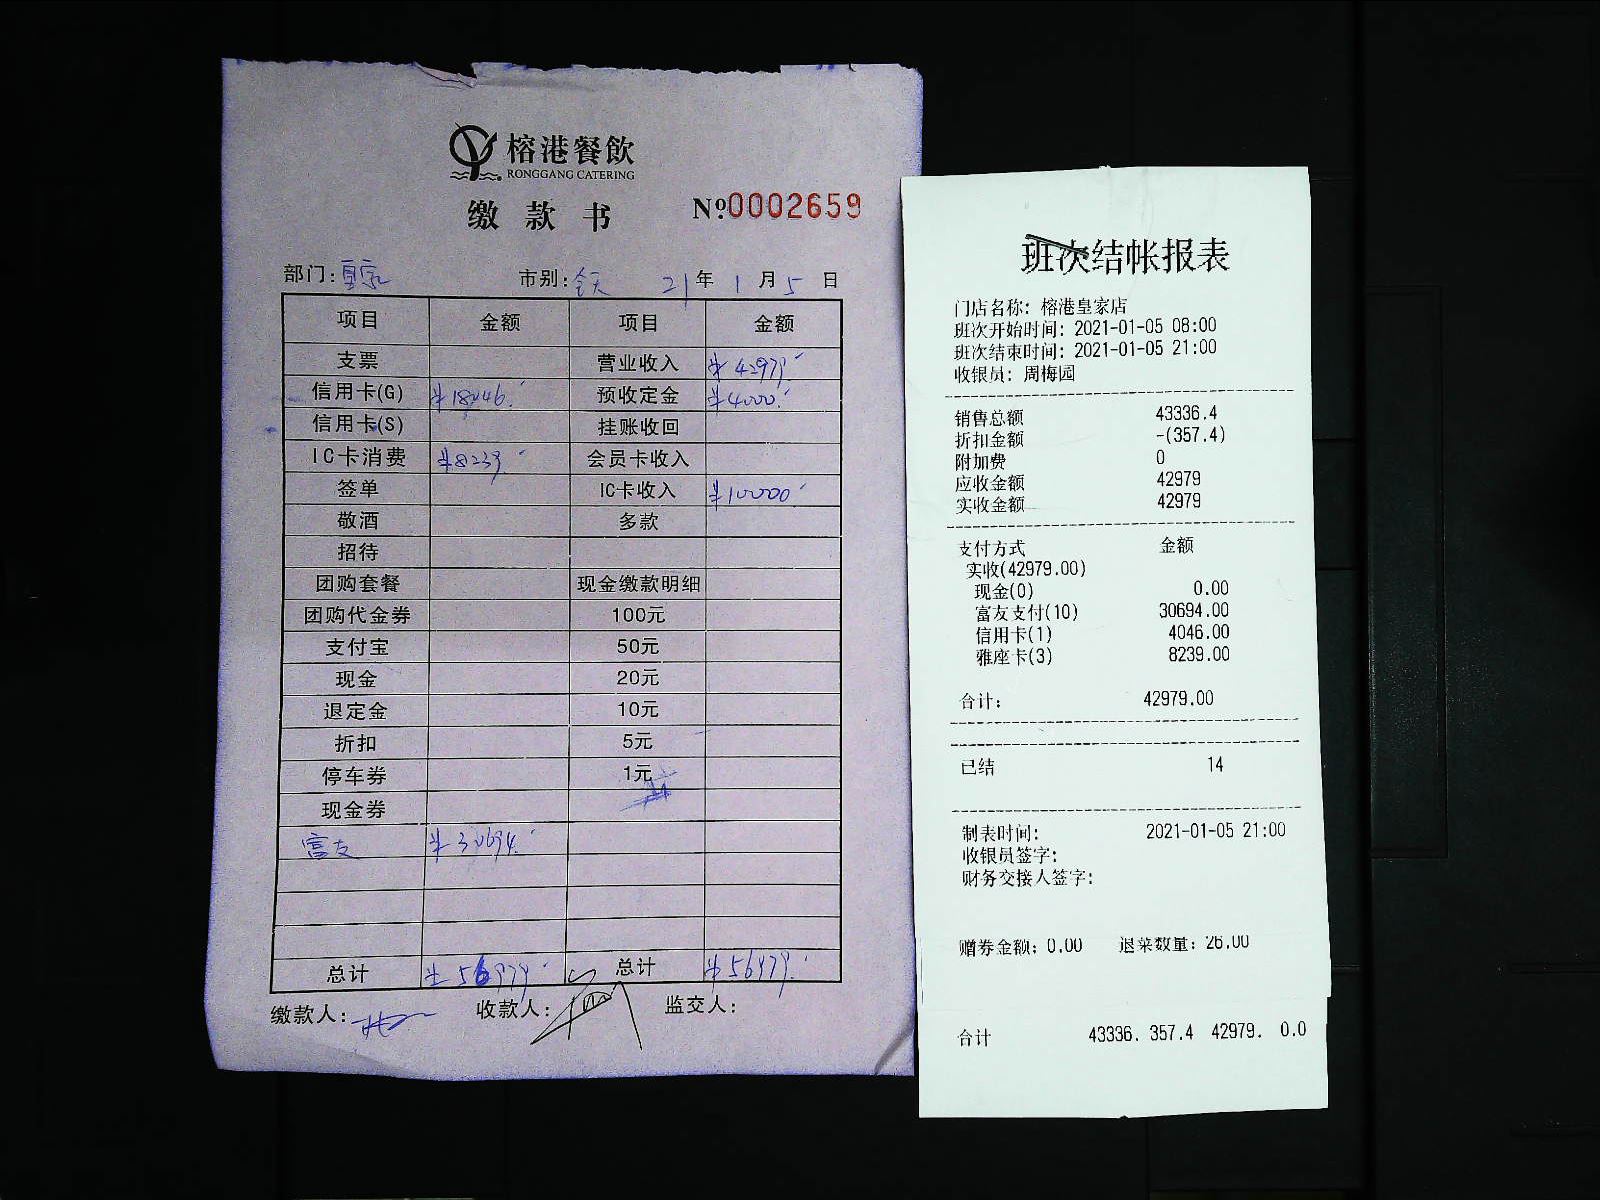 榕港餐飲
RONGGANG CATERING
缴款书 №0002659
部门:皇家 市别:全天 21年1月5日
项目 金额 项目 金额
支票 营业收入 ¥42979.
信用卡(G) ¥18046. 预收定金 ¥4000.
信用卡(S) 挂账收回
IC卡消费 ¥8239. 会员卡收入
签单 IC卡收入 ¥10000
敬酒 多款
招待
团购套餐 现金缴款明细
团购代金券 100元
支付宝 50元
现金 20元
退定金 10元
折扣 5元
停车券 1元
现金券
富友 ¥30694.
总计 ¥56979. 总计 ¥56979.
缴款人: 收款人: 监交人:
班次结帐报表
门店名称: 榕港皇家店
班次开始时间: 2021-01-05 08:00
班次结束时间: 2021-01-05 21:00
收银员: 周梅园
销售总额 43336.4
折扣金额 -(357.4)
附加费 0
应收金额 42979
实收金额 42979
支付方式 金额
实收(42979.00)
现金(0) 0.00
富友支付(10) 30694.00
信用卡(1) 4046.00
雅座卡(3) 8239.00
合计: 42979.00
已结 14
制表时间: 2021-01-05 21:00
收银员签字:
财务交接人签字:
赠券金额: 0.00 退菜数量: 26.00
合计 43336. 357.4 42979. 0.0